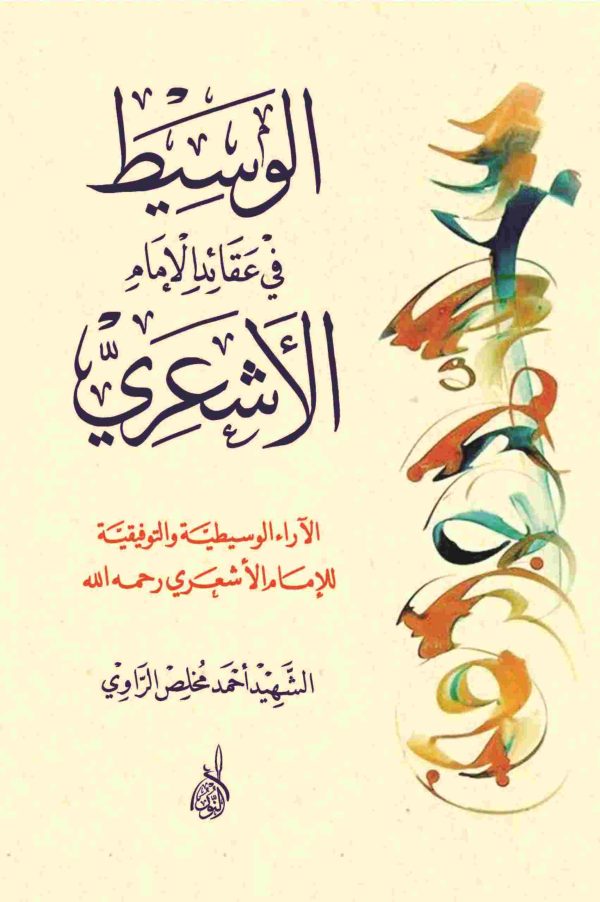 الوَسِيْط
في عَقَائِدِ الإمَامِ
الأَشعَرِيّ
الآراء الوسيطيَّة والتوفيقيَّة
للإمام الأشعري رحمه الله
الشَّهِيْد أحمَد مُخلِص الرَّاوِيْ